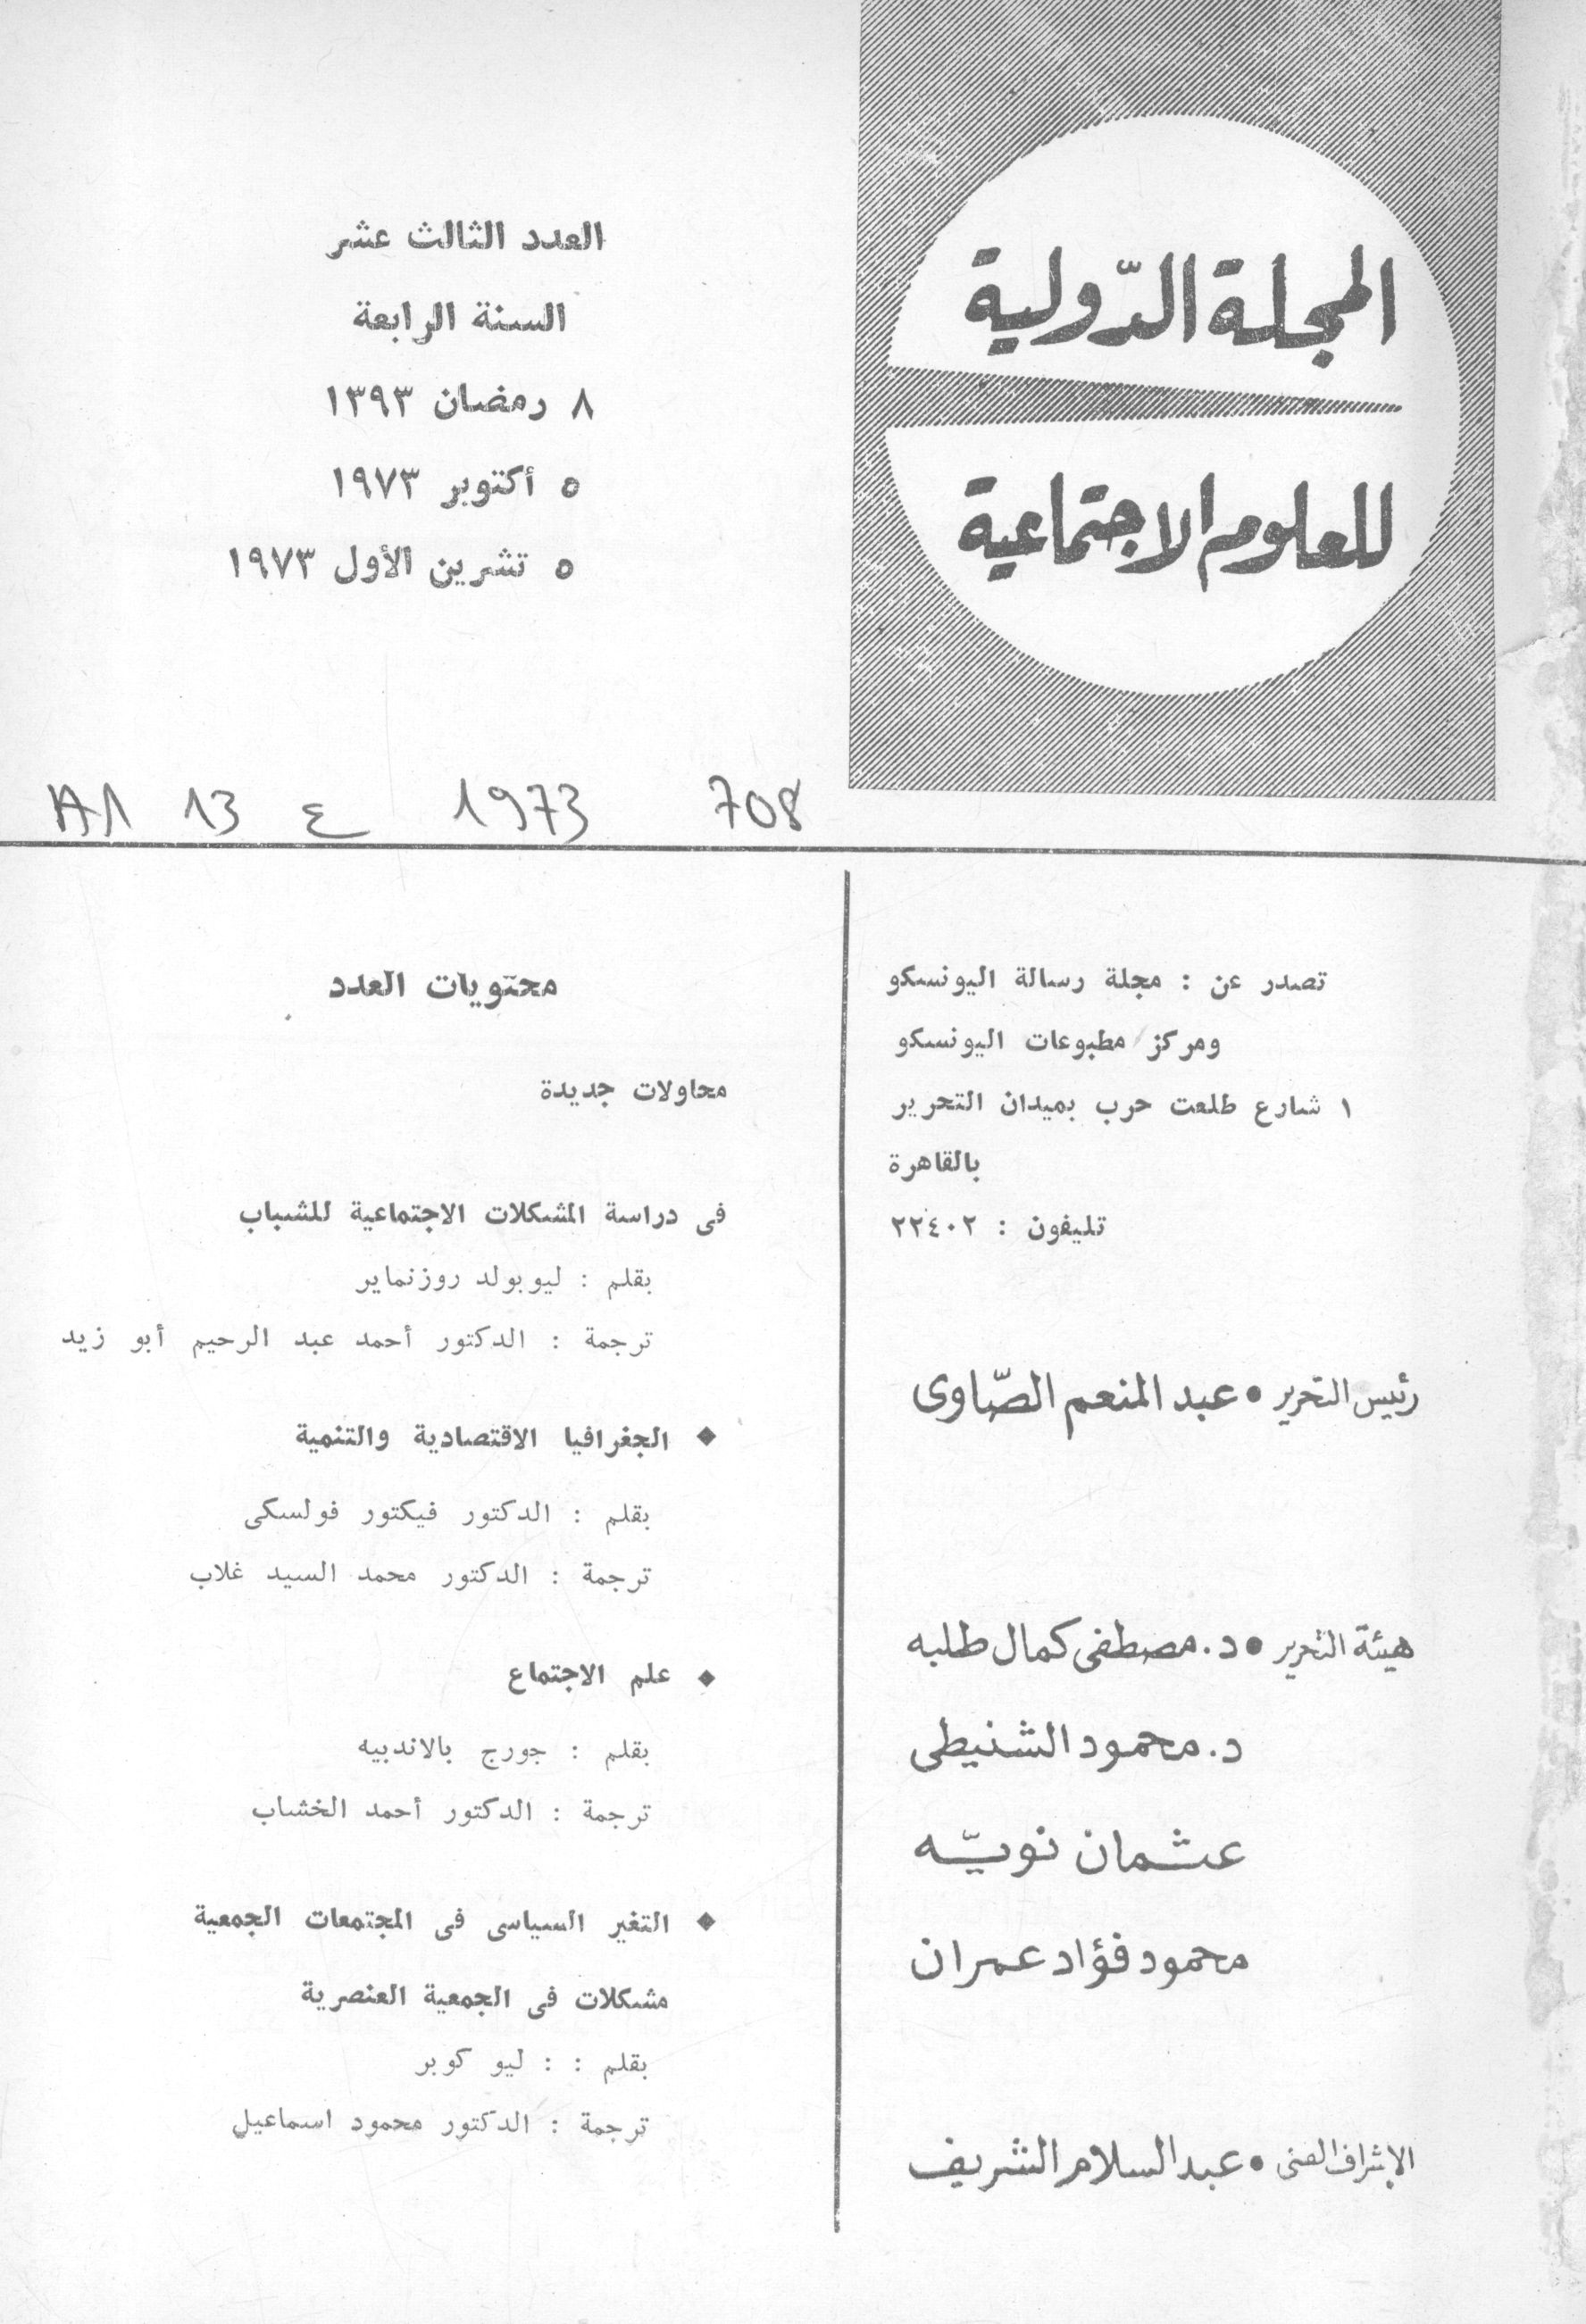 المجلة الدّولية
للعلوم الاجتماعية
العدد الثالث عشر
السنة الرابعة
٨ رمضان ١٣٩٣
٥ أكتوبر ١٩٧٣
٥ تشرين الأول ١٩٧٣
A1 13 ع 1973 708
تصدر عن : مجلة رسالة اليونسكو
ومركز مطبوعات اليونسكو
١ شارع طلعت حرب بميدان التحرير
بالقاهرة
تليفون : ٢٢٤٠٢
رئيس التحرير • عبد المنعم الصّاوى
هيئة التحرير • د. مصطفى كمال طلبه
د. محمود الشنيطى
عثمان نويّه
محمود فؤاد عمران
الإشراف الفنى • عبد السلام الشريف
محتويات العدد
محاولات جديدة
فى دراسة المشكلات الاجتماعية للشباب
بقلم : ليوبولد روزنماير
ترجمة : الدكتور أحمد عبد الرحيم أبو زيد
◆ الجغرافيا الاقتصادية والتنمية
بقلم : الدكتور فيكتور فولسكى
ترجمة : الدكتور محمد السيد غلاب
◆ علم الاجتماع
بقلم : جورج بالاندييه
ترجمة : الدكتور أحمد الخشاب
◆ التغير السياسى فى المجتمعات الجمعية
مشكلات فى الجمعية العنصرية
بقلم : : ليو كوبر
ترجمة : الدكتور محمود اسماعيل